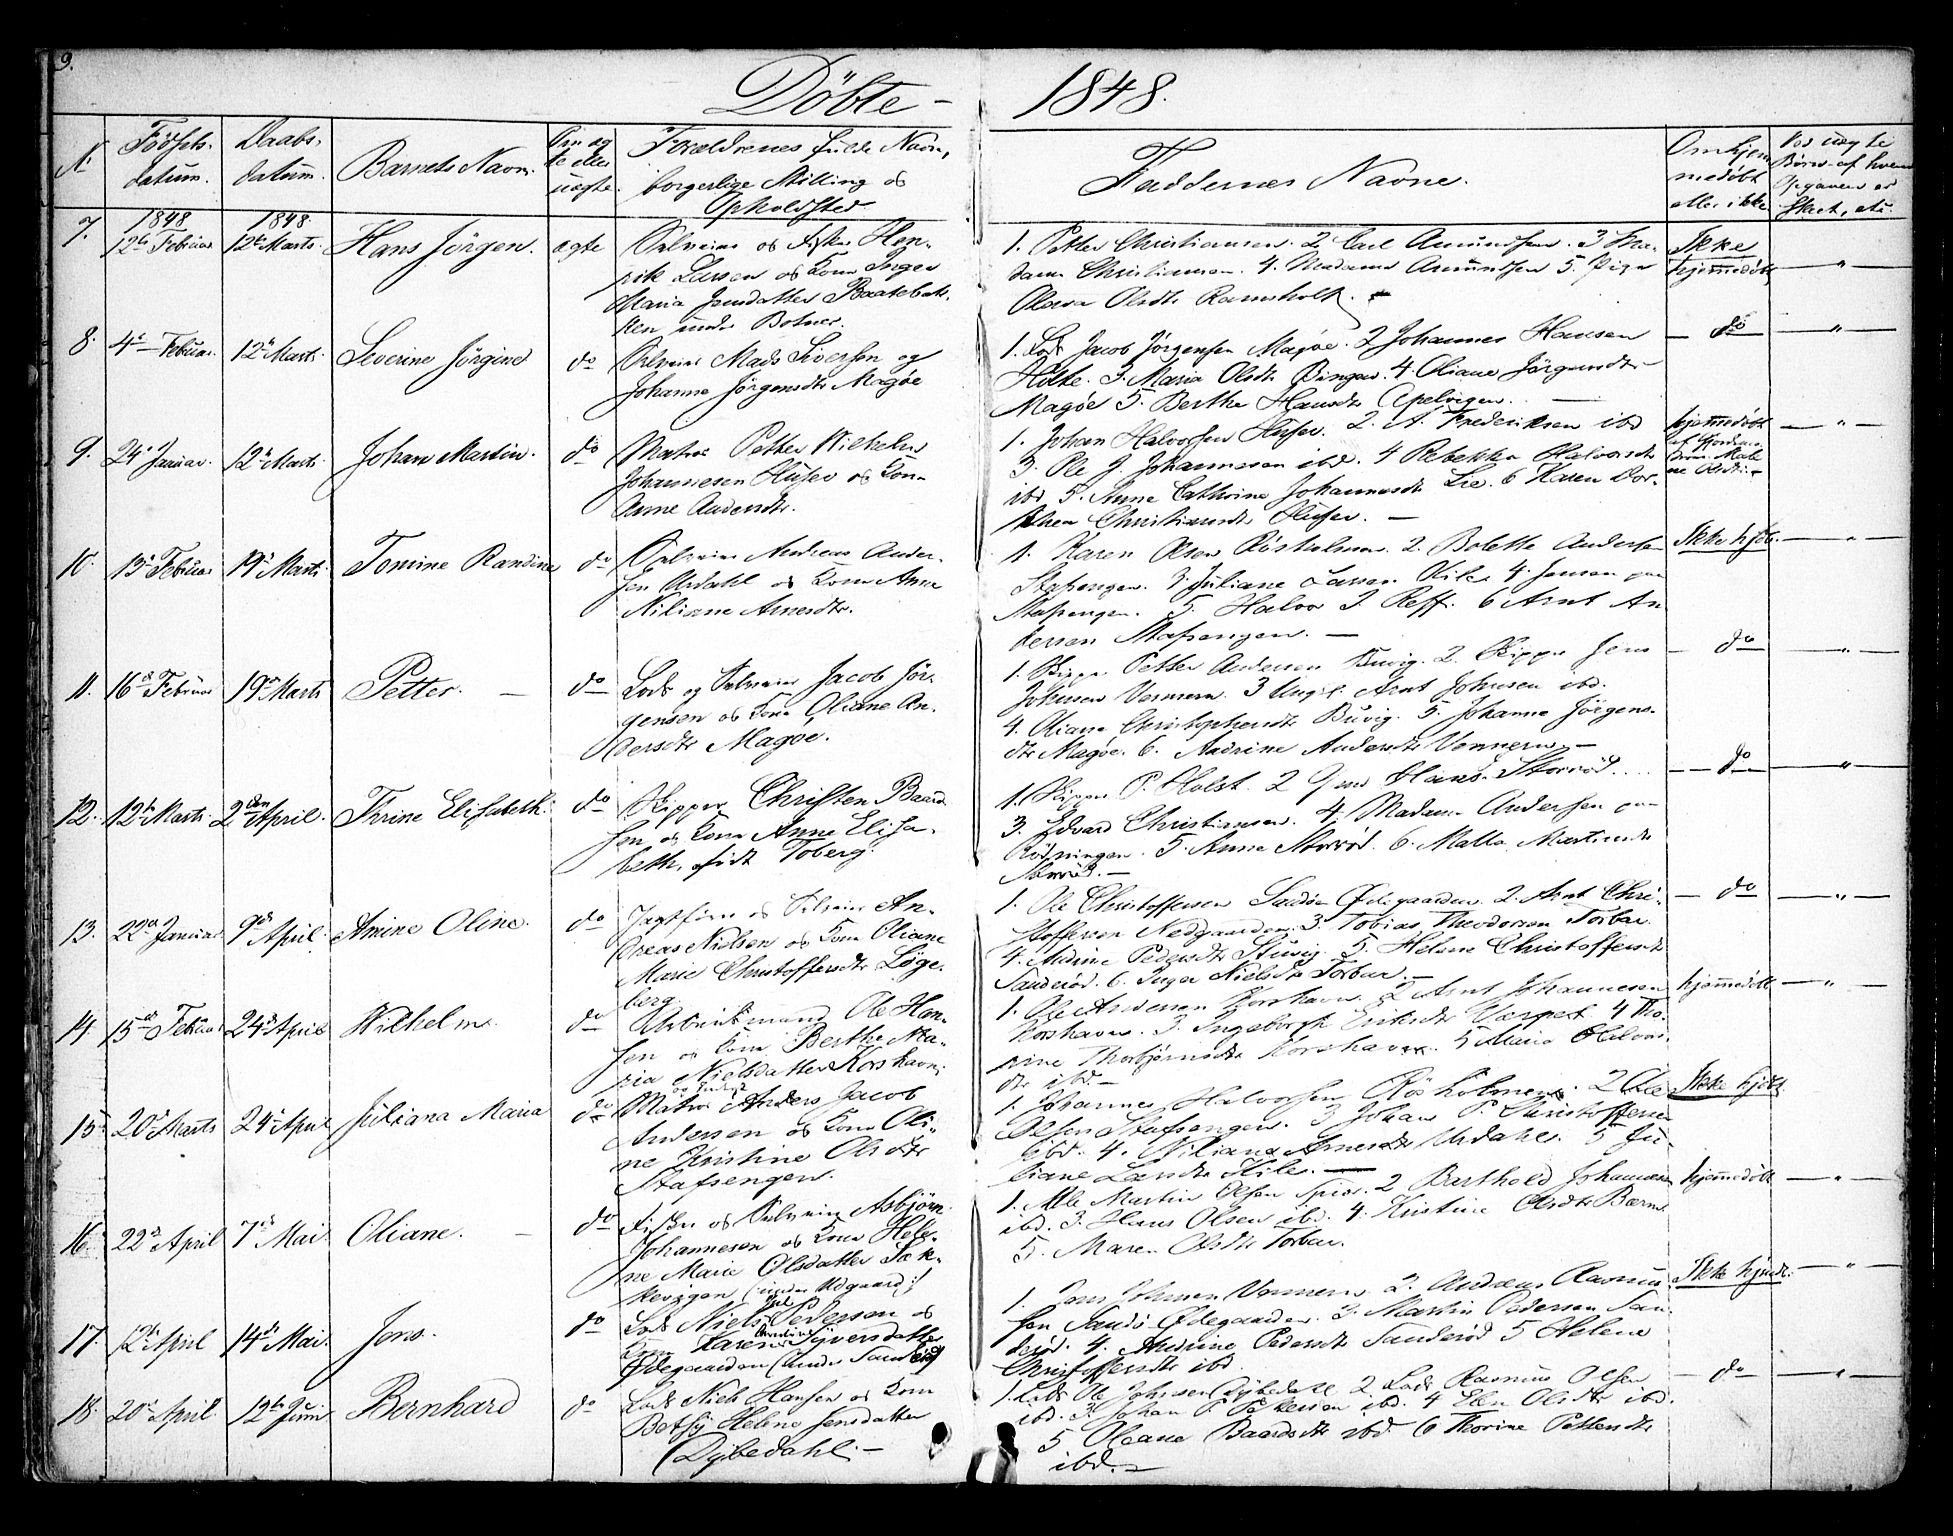 9.
Döbte - 1848.
N.
Födsels-
datum.
Daabs-
datum.
Barnets Navn.
Om æg
te eller
uægte.
Forældrenes fulde Navn,
borgerlige Stilling og
Opholdsted.
Faddernes Navne.
Om hjem
medöbt
eller ikke
7. 1848 1848
12te Februar 12te Marts. Hans Jörgen. ægte
rik Larsen og Kona Inger
Maria
ken under Botner.
1. Petter Christiansen. 2 Carl Amundsen. 3 Ma-
dam Christiansen. 4. Madame Amundsen 5. Pige
Olava Olsdtr Ramsholt.
Ikke
hjemmedöbt
8. 4de Februar. 12te Marts. Severine Jörgine do
Mads Siversen og
Johanne Jörgensdtr Magöe
1. Lods Jacob Jörgensen Magöe. 2 Johannes Hansen
3. Maria Olsdtr Ringer. 4. Oliane Jörgensdtr
Magöe 5. Berthe Hansdtr Apelvigen.
do
9. 24de Januar. 12te Marts. Johan Martin. do
Matros Petter Wilhelm
Johannesen Huser og Kona
Anne Andersdtr.
1. Johan Halvorsen Huser. 2. A. Frederiksen ibd
3. Ole J. Johannesen ibd. 4 Rebekka Halvorsdtr
ibd 5. Anne Cathrine Johannesdtr Lie. 6 Karen Dor-
thea Christiansdtr Huser.
hjemmedöbt
10. 13de Februar 19de Marts Tomine Randine do
Andreas Ander-
sen Urdahl og Kona Anne
Niliane Arnesdtr.
1. Karen Olsen Rösholmen. 2. Bolette Andersen
Stafsengen. 3. Juliane Larsen Kile. 4. Jensen paa
Stafsengen. 5. Halvor J. Reff. 6 Arnt An-
dersen Stafsengen.
Ikke hjdb.
11. 16de Februar 19de Marts Petter. do
Lods og Selveier Jacob Jör-
gensen og Kona Oliane An-
dersdtr Magöe.
1. Skipper Petter Andersen Buvig. 2. Skipper Jens
Johnsen Vennern. 3 Ungk. Arnt Johnsen ibd.
4. Oliane Christophersdtr Buvig. 5. Johanne Jörgens-
dtr Magöe. 6. Andrine Andersdtr Vennern.
do
12. 12te Marts. 2den April. Thrine Elisabeth. do
Skipper Christen Baard-
sen og Kona Anne Elisa-
beth, födt Toberg.
1. Skipper P. Holst. 2 Hans Storröd.
3. Edvard Christiansen. 4. Madam Andersen paa
Rödningen. 5. Anne Storröd. 6. Malla Martinsdtr
Storröd.
do
13. 22de Januar 9de April. Amine Oline. do
og Selveier An-
dreas Nielsen og Kona Oliane
Marie Christoffersdtr Löge-
berg.
1. Ole Christoffersen Sandö Ödegaarden. 2. Arnt Chri-
stoffersen Nedgaarden. 3. Tobias Theodorsen Torbur.
4. Andrine Pedersdtr Stuvig. 5. Helene Christoffersdtr
Sanderöd. 6. Inger Nielsdtr Torbur.
do
14. 15de Februar 24de April Wilhelm. do
Arbeidsmand Ole Han-
sen og Kona Berthe Ma-
ria Nielsdatter Korshavn.
1. Ole Andersen Korshavn. 2 Arnt Johannesen
Korshavn. 3. Ingeborgh Eriksdtr Værpet. 4 Tho-
rine Thorbjörnsdtr Korshavn. 5 Maria Halvors-
dtr ibd.
hjemmedöbt
15. 20de Marts 24de April Juliana Maria do
Matros Anders Jacob
Andersen og Kona Oli-
ne Kristine Olsdtr
Stafsengen.
1. Johannes Halvorsen Rösholmen. 2 Ole
Olsen Stafsengen. 3 Johan P. Christoffersen
ibd. 4. Niliana Arnesdtr Urdahl. 5 Ju-
liane Larsdtr Kile.
Ikke hjdbt
16. 22de April 7de Mai Oliane. do
Fisker og Selveier Asbjörn
Johannesen og Kona Hele-
ne Marie Olsdatter Sæk-
kevigen (under Udgaard)
1. Ole Martin Olsen Spior. 2 Berthold Johannesen
ibd. 3. Hans Olsen ibd. 4. Kristine Olsdtr Bærø.
5. Maren Olsdtr Torbur.
hjemmedöbt
17. 12te April 14de Mai. Jens. do
Lods Niels Pedersen og
Kona Karen Syversdatter
Ödegaarden (under Sanderöd)
1. Jens Johnsen Vennern. 2. Andreas Rasmus-
sen Sandö Ödegaarden. 3. Martin Pedersen San-
deröd. 4. Andrine Pedersdtr Sanderöd 5 Helene
Christoffersdtr ibd.
Ikke hjmdt.
18. 20de April. 12te Juni Bernhard do
Lods Niels Hansen og Kona
Betsÿ Helene Jensdatter
Dybedahl.
1. Lods Ole Johnsen Dybedahl 2. Lods Rasmus Olsen
ibd. 3. Johan P. Pedersen ibd. 4 Elen Olsdtr ibd.
5 Oleane Baardsdtr ibd 6 Thorine Pettersdtr
ibd.
do